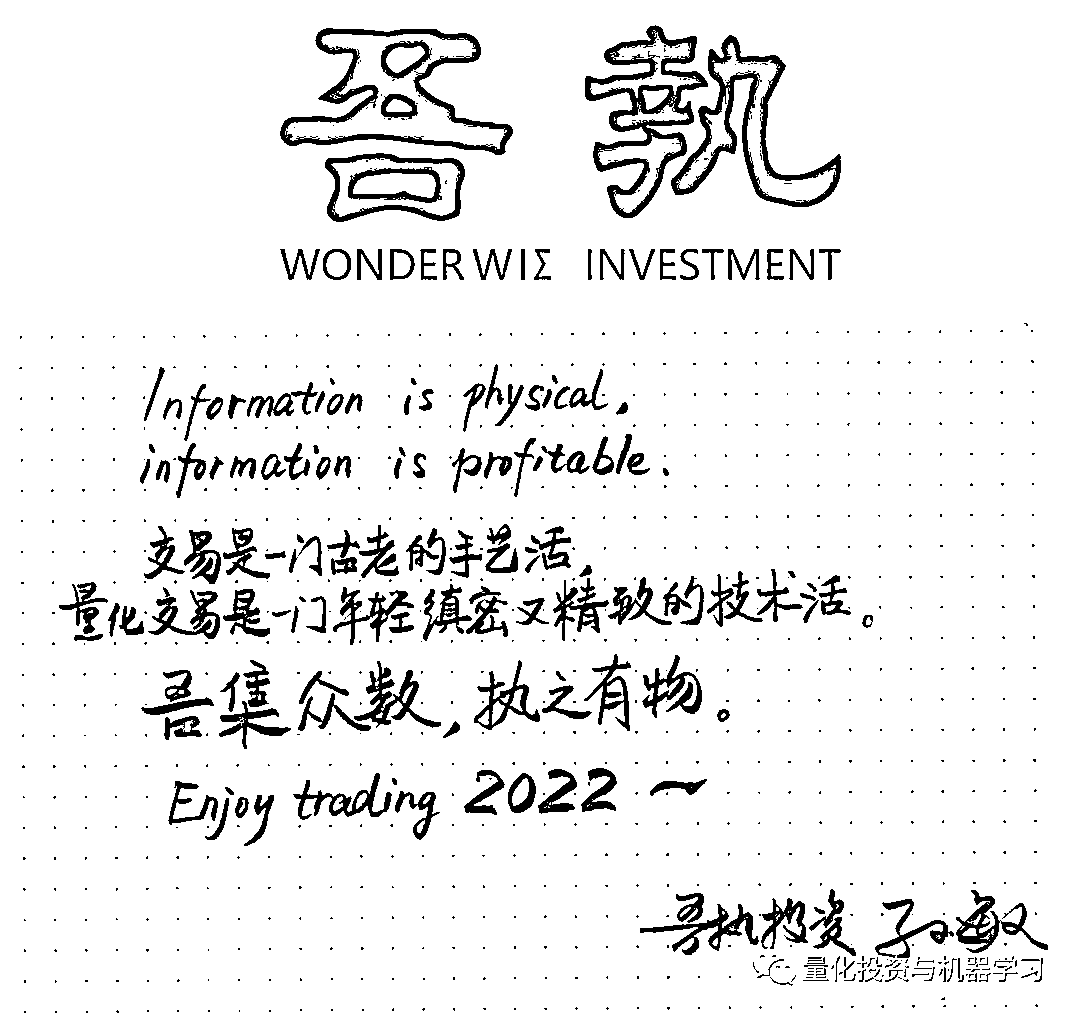 吾執
WONDERWIΣ INVESTMENT
Information is physical,
information is profitable.
交易是一门古老的手艺活,
量化交易是一门年轻缜密又精致的技术活。
吾集众数,执之有物。
Enjoy trading 2022 ~
吾执投资 孙敏
量化投资与机器学习